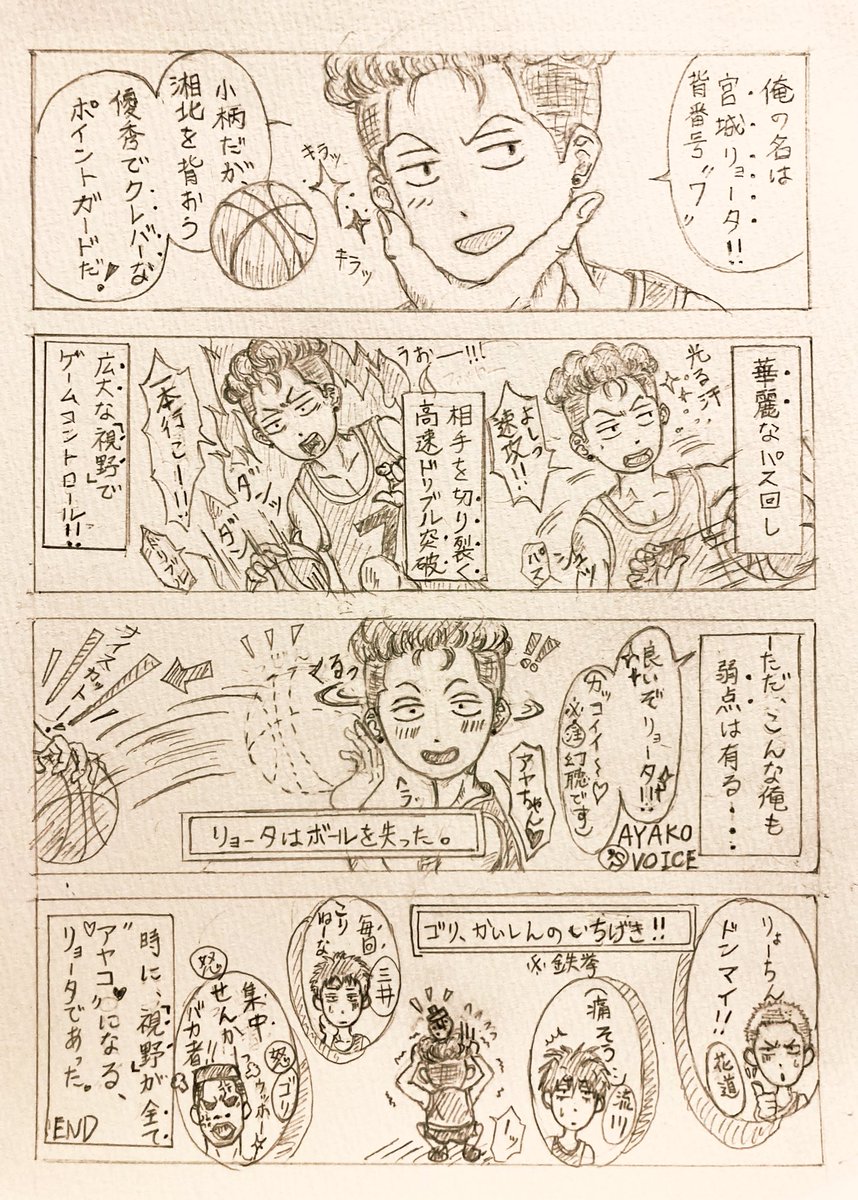 俺の名は
宮城リョータ!!
背番号"7"
キラッ
キラッ
小柄だが、
湘北を背おう
優秀でクレバーな
ポイントガードだ。
華麗なパス回し
光る汗
よしっ
速攻!!
パス
相手を切り裂く
高速ドリブル突破
うおー!!!
ダンッ
ダン
ドリブル
一本行こー!!
広大な「視野」で
ゲームコントロール!!
ーただ、こんな俺も
弱点は有る・・・
良いぞリョータ!!!
カッコイイ〜♡
幻聴です
AYAKO
VOICE
アヤちゃん♡
くるっ
ヘラッ
リョータはボールを失った。
ナイスカァイー
りょーちん
ドンマイ!!
花道
ゴリ、かいしんのいちげき!!
※鉄拳
流川
毎回、
こり
ねーな
三井
集中
せんか
バカ者!!
怒
怒
ゴリ
時に、「視野」が全て
"アヤコ"になる、
リョータであった。
END